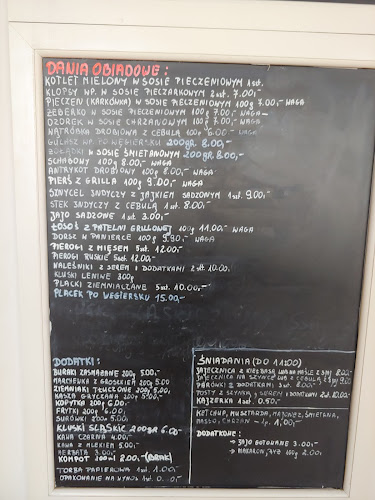 DANIA OBIADOWE:
KOTLET MIELONY W SOSIE PIECZENIOWYM 1szt.
KLOPSY WP. W SOSIE PIECZARKOWYM 2szt. 7.00,-
PIECZEŃ (KARKÓWKA) W SOSIE PIECZENIOWYM 100g 7.00,- WAGA
ŻEBERKO W SOSIE PIECZENIOWYM 100g 7.00,- WAGA
OZOREK W SOSIE CHRZANOWYM 100g 7.00,- WAGA
WĄTRÓBKA DROBIOWA Z CEBULĄ 100g 6.00,- WAGA
GULASZ WP. PO WĘGIERSKU 200GR. 8.00,-
ŻOŁĄDKI W SOSIE ŚMIETANOWYM 200GR 8.00,-
SCHABOWY 100g 8.00,- WAGA
ANTRYKOT DROBIOWY 100g 8.00,- WAGA
PIERŚ Z GRILLA 100g 9.00,- WAGA
SZNYCEL INDYCZY Z JAJKIEM SADZONYM 1szt. 9.00,-
STEK INDYCZY Z CEBULĄ 1szt. 8.00,-
JAJO SADZONE 1szt 3.00,-
ŁOSOŚ Z PATELNI GRILLOWEJ 100g 11.00,- WAGA
DORSZ W PANIERCE 100g 9.90,- WAGA
PIEROGI Z MIĘSEM 5szt. 12.00,-
PIEROGI RUSKIE 5szt. 12.00,-
NALEŚNIKI Z SEREM I DODATKAMI 2szt. 10.00,-
KLUSKI LENIWE 300g
PLACKI ZIEMNIACZANE 5szt. 10.00,-
PLACEK PO WĘGIERSKU 15.00,-
DODATKI:
BURAKI ZASMAŻANE 200g 5.00,-
MARCHEWKA Z GROSZKIEM 200g 5.00
ZIEMNIAKI TŁUCZONE 200g 5.00,-
KASZA GRYCZANA 200g 5.00,-
KOPYTKA 200g 6.00,-
FRYTKI 200g 6.00,-
SURÓWKI 200g 5.00,-
KLUSKI ŚLĄSKIE 200GR 6.00-
KAWA CZARNA 4.00,-
KAWA Z MLEKIEM 5.00,-
HERBATA 3.00,-
KOMPOT 200ml 2.00,- (BRAK)
TORBA PAPIEROWA 1szt. 1.00,-
OPAKOWANIE NA WYNOS 1szt.
ŚNIADANIA (DO 11:00)
JAJECZNICA Z KIEŁBASĄ LUB NA MAŚLE Z 3 jaj 8.00,-
JAJECZNICA NA SZYNCE LUB Z CEBULĄ Z 3 jaj 9.00,-
PARÓWKI Z DODATKAMI 3szt. 8.00,-
TOSTY Z SZYNKĄ, SEREM I DODATKAMI 2szt. 10.00,-
KAJZERKA 1szt. 0.50,-
KETCHUP, MUSZTARDA, MAJONEZ, ŚMIETANA,
MASŁO, CHRZAN - 1,00,-
DODATKOWE:
→ JAJO GOTOWANE 3.00,-
→ MAKARON/RYŻ 100g 2.00